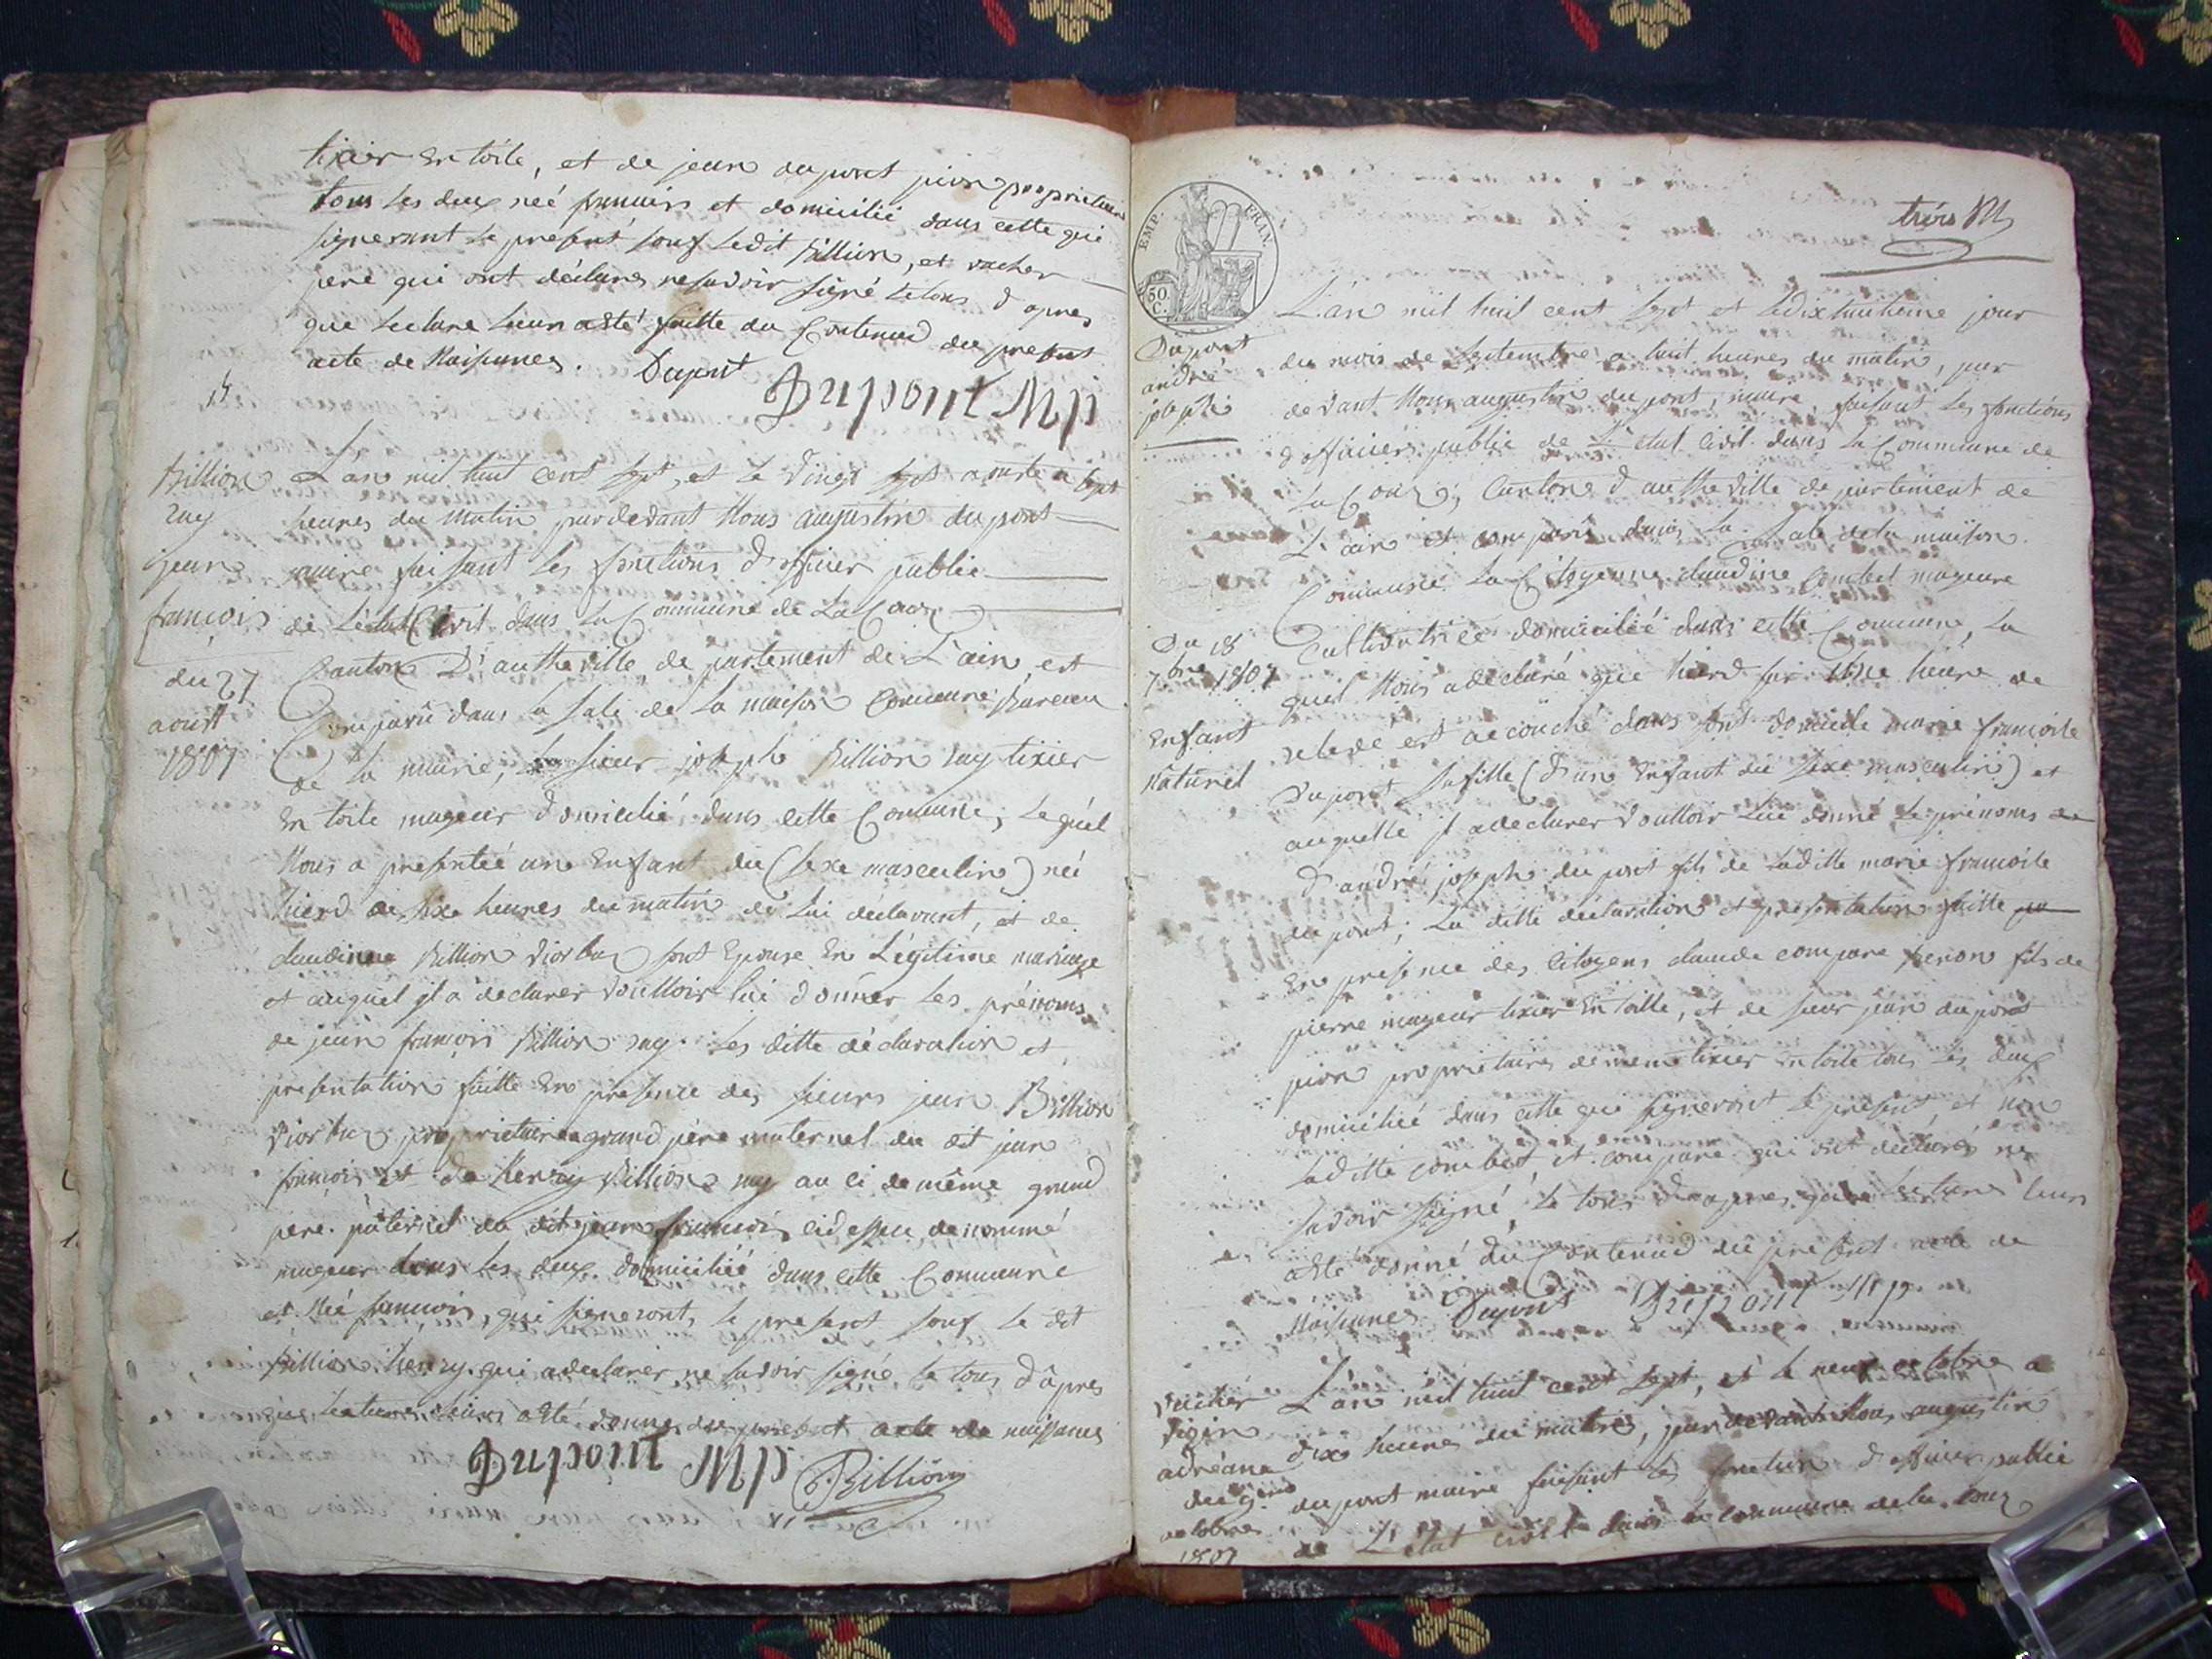 tixier En toile, et de jean du pont pion propriétaire
tous les deux neé francois et domicilié dans cette qui
signeront le present souf ledit Billion, et vacher
pere qui ont déclarer ne savoir signé le tous d apres
que lecture leur a été faitte du Contenud du present
acte de Naissances. Dupont
Dupont Mp
Billion
ruy
jean
francois
du 27
aoust
1807
L'an mil huit cent sept, et le vingt sept aouste a sept
heures du Matin pardevant Nous augustin du pont
maire faisant les fonctions d'officier public
de Létat Civil dans la Commune de La Couz
Canton D'autheville, de partement de L'ain, est
Comparû dans la sale de la maison Commune Bureau
de la mairie, le sieur joseph Billion ruy tixier
En toile mageur domicilié dans cette Commune, Lequel
Nous a presenteé une Enfant du (sexe masculin) neé
hierd a six heures du matin de lui déclarant, et de
claudine Billion Viorbuz sont Epouse En Légitime mariage
et auquel il a declarer voulloir lui donner les prénoms
de jean francois Billion ruy. Les ditte déclaration et
presentation faitte En presence des sieurs jean Billion
propriétaire grand pére maternel du dit jean
francois et de henry Billion ruy au ci de même grand
pere paternel du dit jean francois cidessu denommé
mageur tous les deux domicilié dans cette Commune
et Neé francois, qui signeronts le present souf le dit
Billion henry qui a declarer ne savoir signé le tous d'apres
que lecture leurs a été donner du present acte de naissances
Dupont Mp Billion
trois
EMP. FRAN.
50. C.
Dupont
andré
joseph
Du 18
7bre 1807
Enfant
Naturel
L'an mil huit cent sept et le dix huitieme jour
du mois de septembre a huit heures du matin, par
devant Nous augustin du pont, maire, faisant les fonctions
d officiers public de L'etat Civil dans la Commune de
La Couz, Canton d autheville de partement de
L'ain est comparû dans la sale de la maison
Commune La Citoyenne claudine Combet mageure
Cultivatrice domicilié dans cette Commune, La
quel Nous a declaré que hierd sur une heure de
relevé est accouché dans sont domicile marie francoise
Dupont sa fille (d'une Enfant du sexe masculin) et
auquelle il a declarer voulloir lui donné le prénoms de
d'andré joseph du pont fils de laditte marie francoise
du pont; La ditte déclaration et presentation faitte
En presence des Citoyens claude compare peron fils de
pierre mageur tixier En toille, et de sieur jean du pont
pion propriétaires de meme tixier En toile tous les deux
domicilié dans cette qui signeront le present, et non
ladite combet, et compare qui ont déclarés ne
savoir signé, le tous d'apres que lecture leurs
a été donné du Contenud du present acte de
Naissances Dupont Dupont Mp
vacher
adréane
du 9.
octobre
1807
L'an mil huit cent sept, et le neuf octobre a
dix heures du matin, par devant Nous augustin
du pont maire faisant les fonction d officier public
de L'état civil dans la commune de la Couz